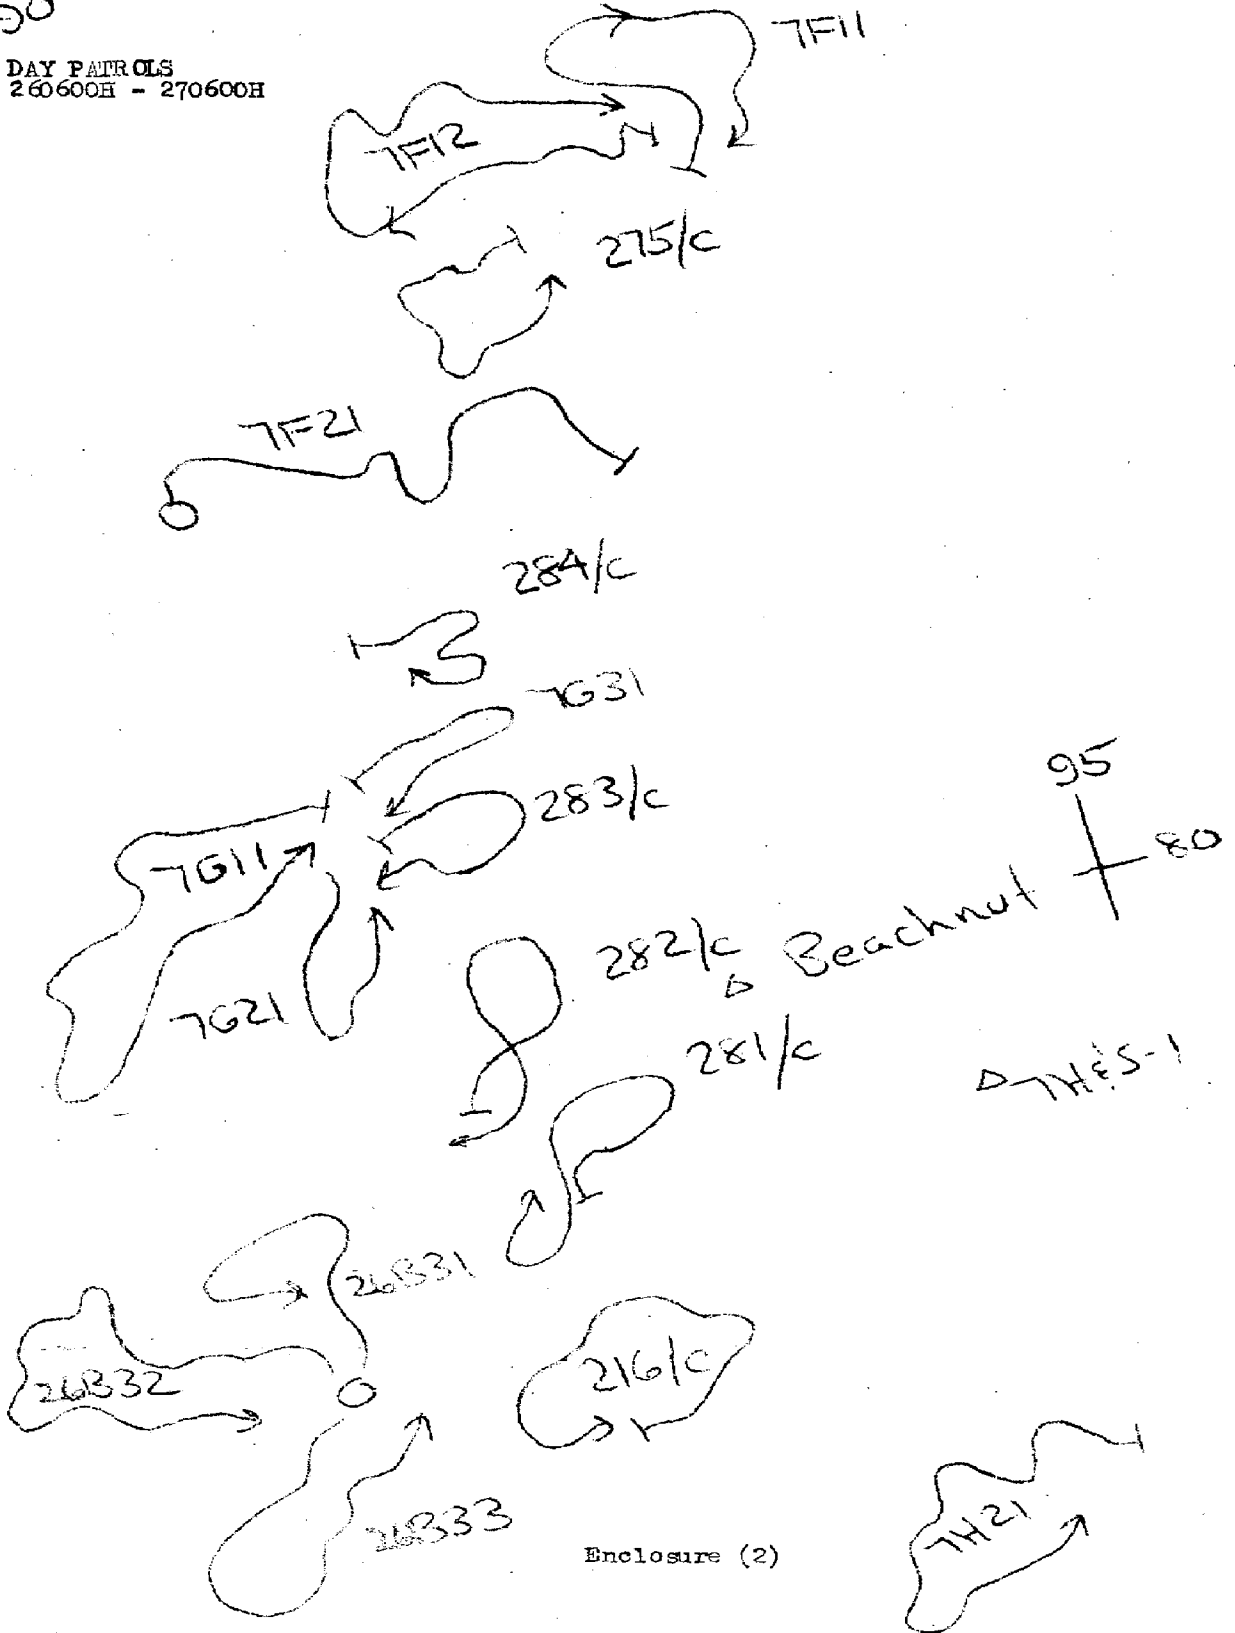 50
DAY PATROLS
260600H - 270600H
7F11
7F12
275/c
7F21
284/c
7G31
283/c
7G11
95
80
Beachnut
282/c
7G21
281/c
7H&S-1
26B31
26B32
216/c
26B33
7H21
Enclosure (2)